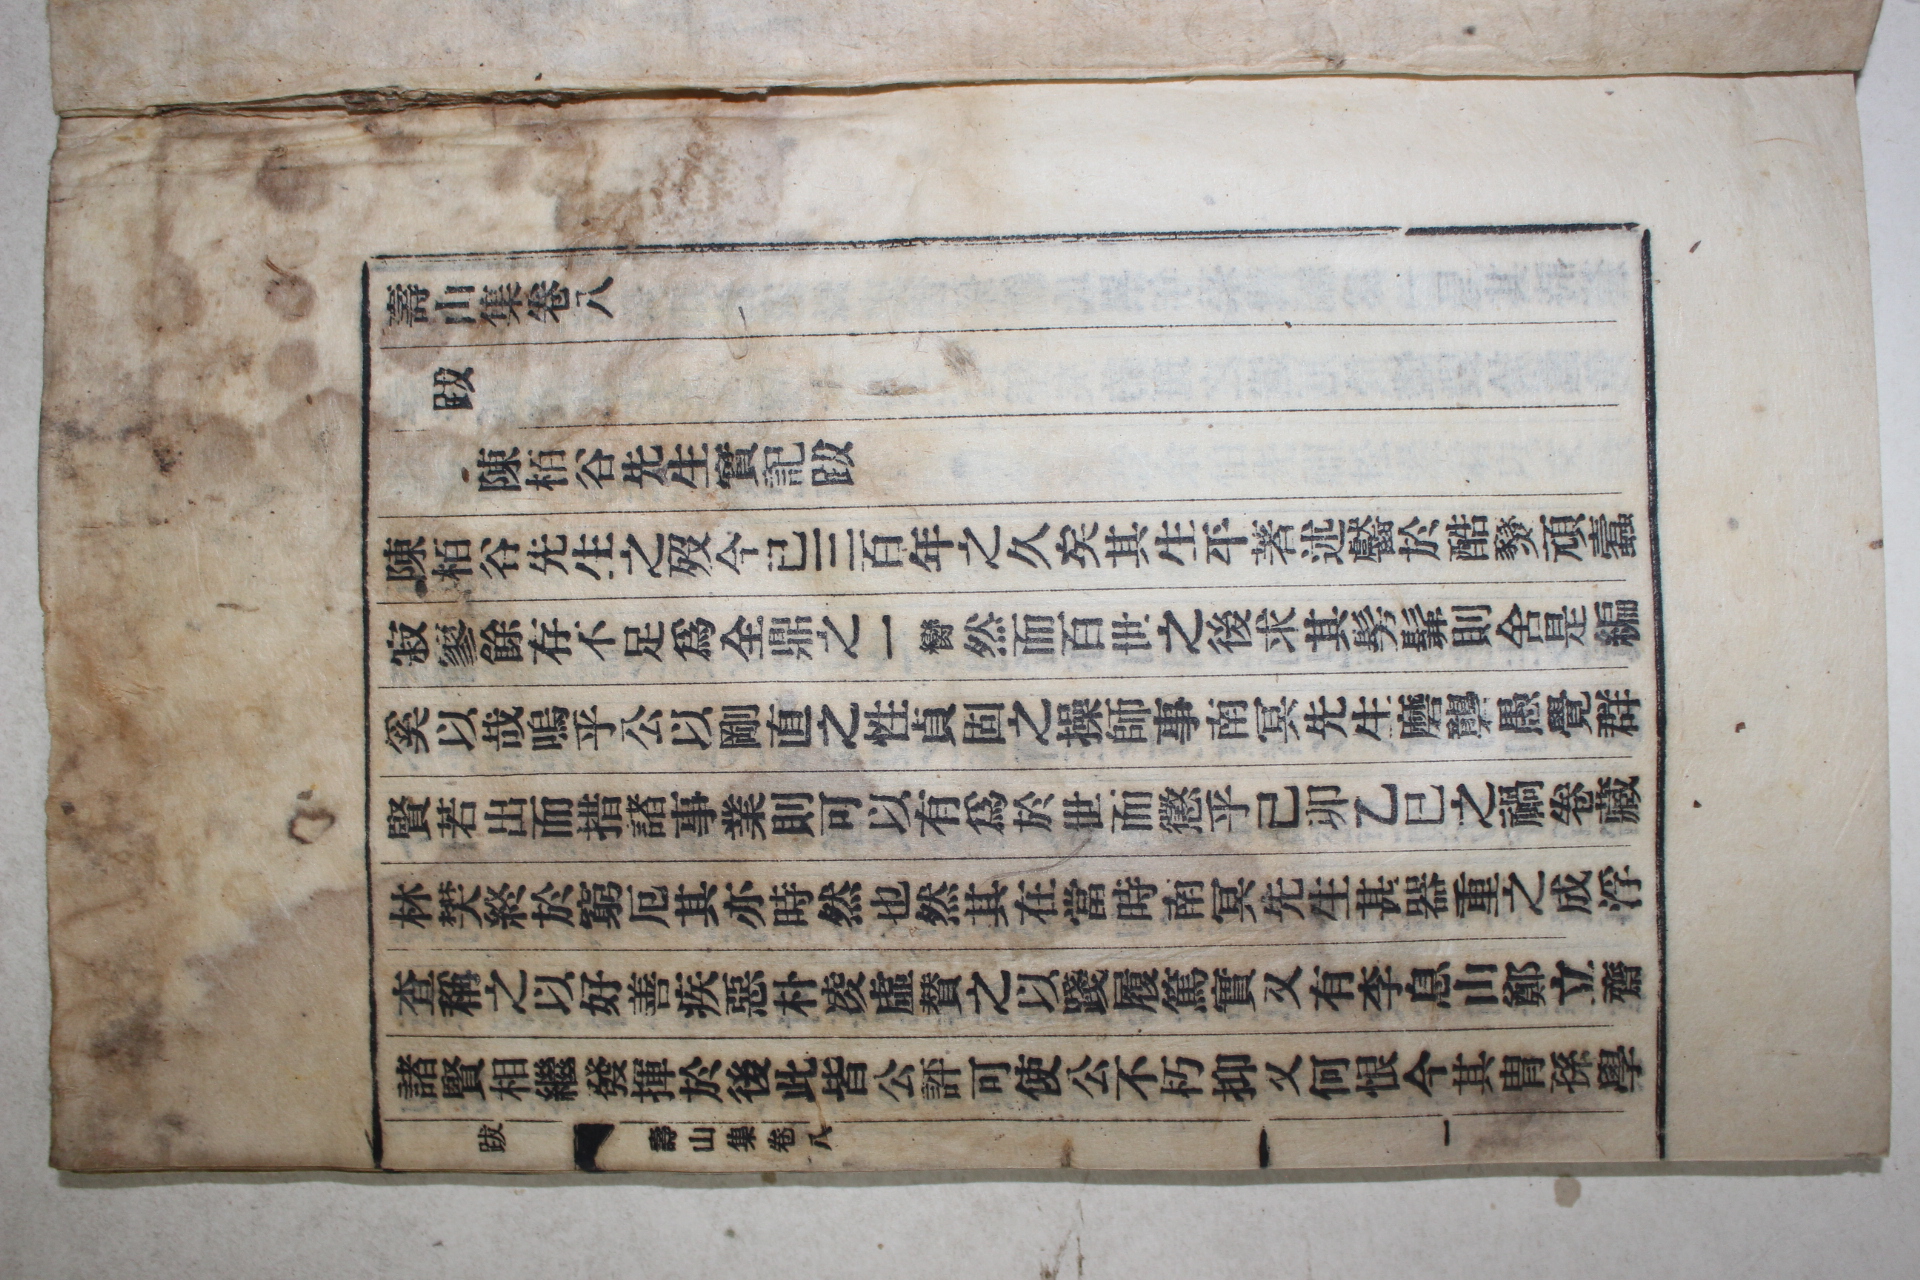 壽山集卷八
跋
陳栢谷先生實記跋
陳栢谷先生之歿今已三百年之久矣其生平著述鬱於酷發頑蠹
寂寥餘存不足爲全鼎之一臠然而百世之後求其髣髴則舍是編
奚以哉嗚乎公以剛直之性貞固之操師事南冥先生磨礱愚覺群
賢若出而措諸事業則可以有爲於世而懲乎己卯乙巳之禍卷藏
林樊終於窮厄其亦時然也然其在當時南冥先生甚器重之成浮
査稱之以好善疾惡朴凌虛贊之以踐履篤實又有李息山鄭立齋
諸賢相繼發揮於後此皆公評可使公不朽抑又何恨今其冑孫學
跋 壽山集卷八 一